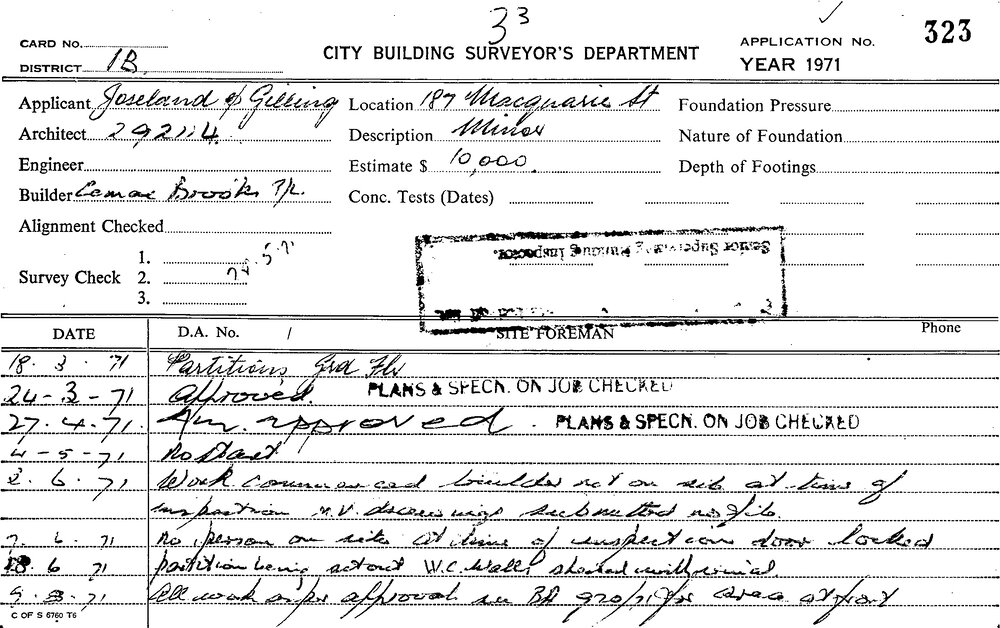 33
CARD NO.
DISTRICT 1B.
CITY BUILDING SURVEYOR'S DEPARTMENT
APPLICATION NO. 323
YEAR 1971
Applicant Joseland & Gilling Location 187 Macquarie St Foundation Pressure
Architect 292114 Description Minor Nature of Foundation
Engineer Estimate $ 10,000. Depth of Footings
Builder Brooks P/L. Conc. Tests (Dates)
Alignment Checked
Senior Supervising Building Inspector.
Survey Check 1.
2. 24.5.71
3.
DATE D.A. No. / SITE FOREMAN Phone
18. 3. 71 Partitions Grd Flr
24-3-71 Approved. PLANS & SPECN. ON JOB CHECKED
27.4.71. Am. approved. PLANS & SPECN. ON JOB CHECKED
4-5-71 No Start
2. 6. 71 Work commenced builder not on site at time of
inspection M.V. drawings submitted
7. 6. 71 No person on site at time of inspection door locked
18 6 71 partition being set out W.C. Walls sheeted with
9. 8. 71 All work as per approval see BA 920/71 for area at front
C OF S 6760 T6